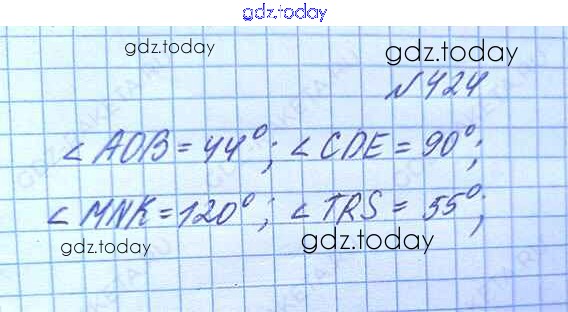 gdz.today
gdz.today gdz.today
№424
∠AOB = 44°; ∠CDE = 90°;
∠MNK = 120°; ∠TRS = 55°;
gdz.today gdz.today